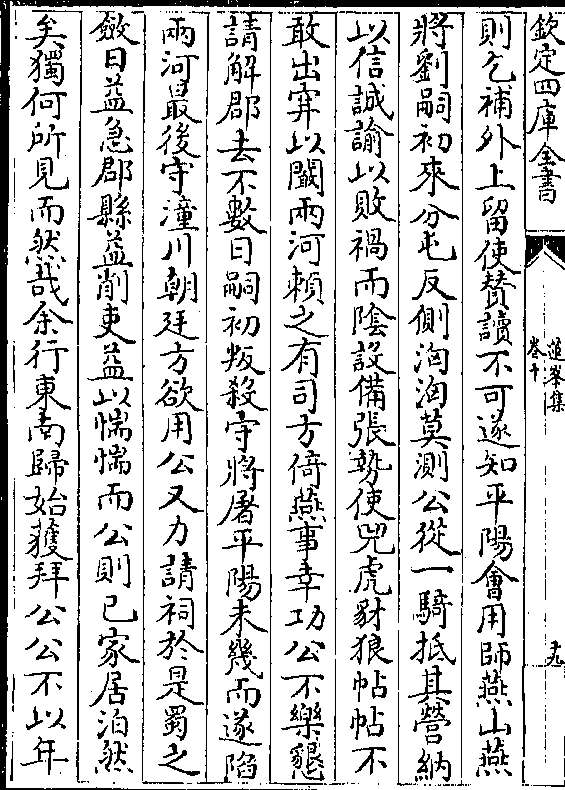 欽定四庫全書
蓮峯集
卷十
十九
則乞補外上留使賛讀不可遂知平陽會用師燕山燕
將劉嗣初來分屯反側洶洶莫測公從一騎抵其營納
以信誠諭以敗禍而隂設備張勢使兕虎豺狼帖帖不
敢出穽以闞兩河頼之有司方倚燕事幸功公不樂懇
請解郡去不數日嗣初叛殺守將屠平陽未幾而遂陷
兩河最後守潼川朝廷方欲用公又力請祠於是蜀之
斂日益急郡縣益削吏益以惴惴而公則已家居泊然
矣獨何所見而然哉余行東南歸始獲拜公公不以年